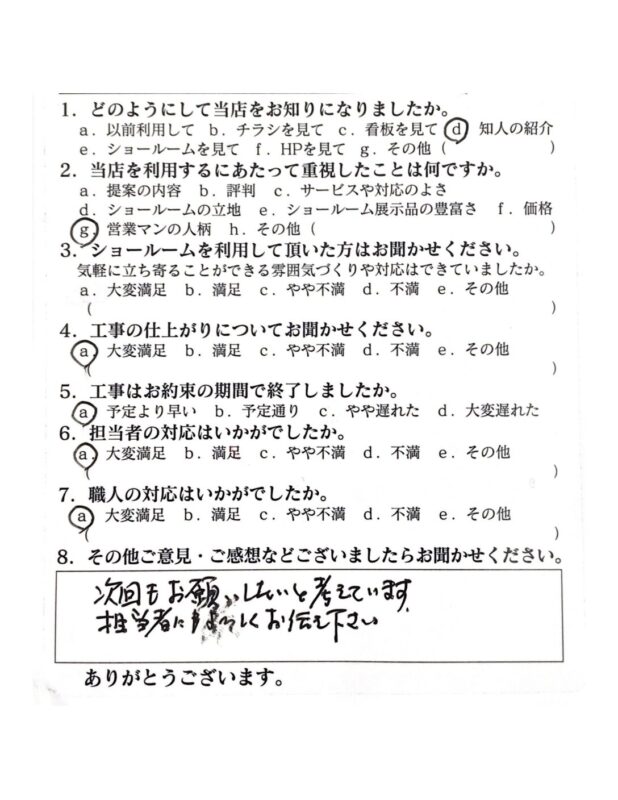 1．どのようにして当店をお知りになりましたか。
a．以前利用して b．チラシを見て c．看板を見て d 知人の紹介
e．ショールームを見て f．HPを見て g．その他（　　　　　）
2．当店を利用するにあたって重視したことは何ですか。
a．提案の内容 b．評判 c．サービスや対応のよさ
d．ショールームの立地 e．ショールーム展示品の豊富さ f．価格
g．営業マンの人柄 h．その他（　　　　　）
3．ショールームを利用して頂いた方はお聞かせください。
気軽に立ち寄ることができる雰囲気づくりや対応はできていましたか。
a．大変満足 b．満足 c．やや不満 d．不満 e．その他
（　　　　　）
4．工事の仕上がりについてお聞かせください。
a．大変満足 b．満足 c．やや不満 d．不満 e．その他
（　　　　　）
5．工事はお約束の期間で終了しましたか。
a．予定より早い b．予定通り c．やや遅れた d．大変遅れた
6．担当者の対応はいかがでしたか。
a．大変満足 b．満足 c．やや不満 d．不満 e．その他
（　　　　　）
7．職人の対応はいかがでしたか。
a 大変満足 b．満足 c．やや不満 d．不満 e．その他
（　　　　　）
8．その他ご意見・ご感想などございましたらお聞かせください。
次回もお願いしたいと考えています。
担当者にもよろしくお伝え下さい
ありがとうございます。